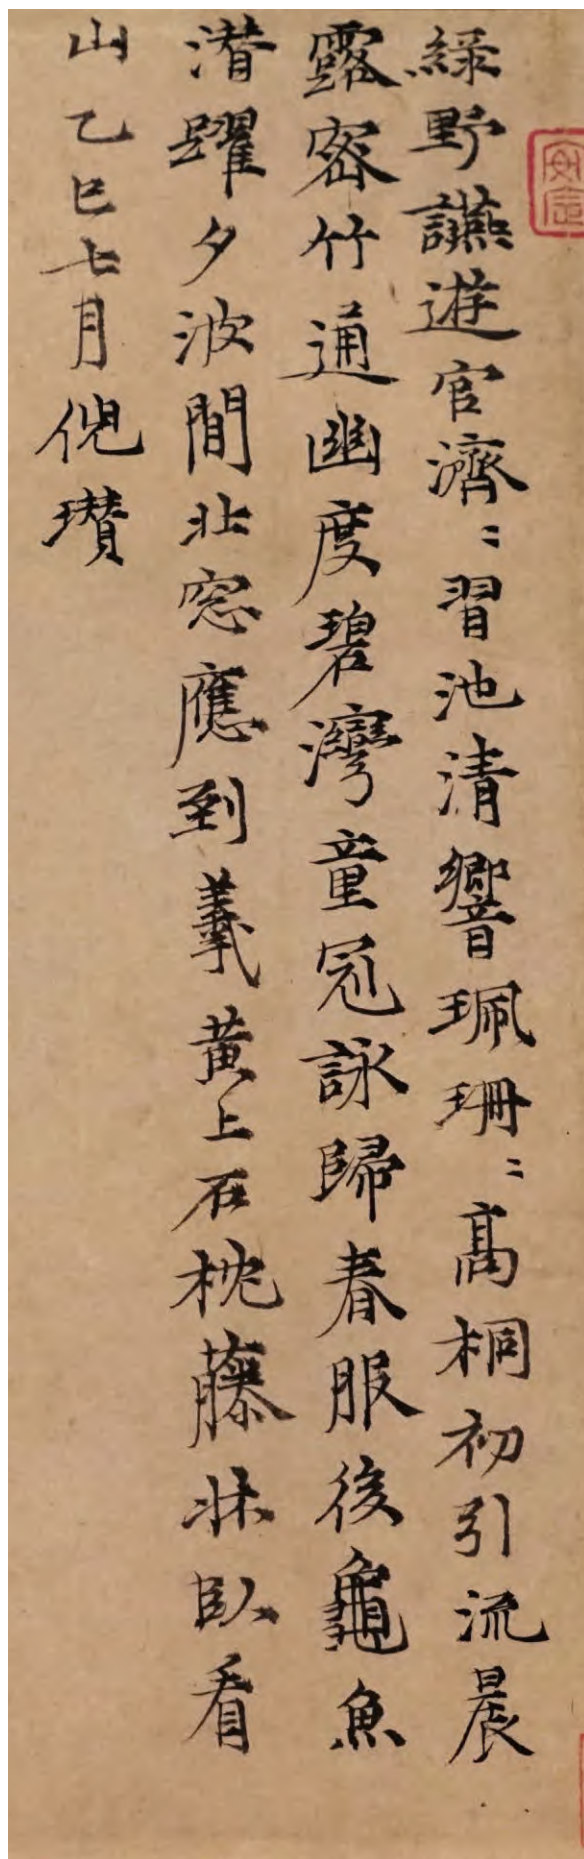 綠野讌遊官濟〻習池清響珮珊〻高桐初引流晨
露密竹通幽度碧灣童冠詠歸春服後龜魚
潛躍夕波間北窓應到羲黄上石枕藤牀臥看
山乙巳七月倪瓚